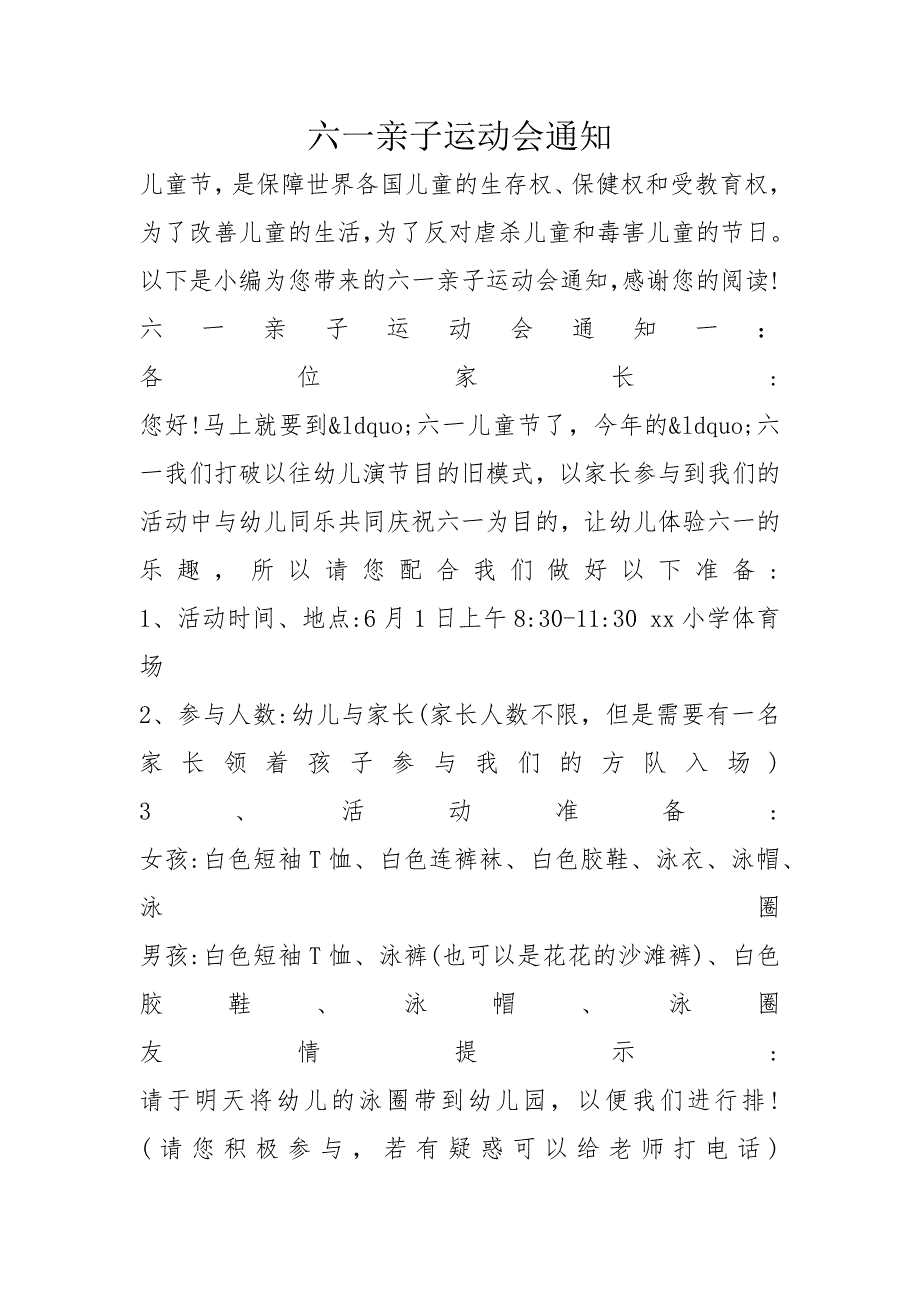 六一亲子运动会通知
儿童节，是保障世界各国儿童的生存权、保健权和受教育权，
为了改善儿童的生活，为了反对虐杀儿童和毒害儿童的节日。
以下是小编为您带来的六一亲子运动会通知，感谢您的阅读!
六一亲子运动会通知一：
各位家长：
您好!马上就要到&ldquo;六一儿童节了，今年的&ldquo;六
一我们打破以往幼儿演节目的旧模式，以家长参与到我们的
活动中与幼儿同乐共同庆祝六一为目的，让幼儿体验六一的
乐趣，所以请您配合我们做好以下准备:
1、活动时间、地点:6月1日上午8:30-11:30 xx小学体育
场
2、参与人数:幼儿与家长(家长人数不限，但是需要有一名
家长领着孩子参与我们的方队入场)
3、活动准备:
女孩:白色短袖T恤、白色连裤袜、白色胶鞋、泳衣、泳帽、
泳圈
男孩:白色短袖T恤、泳裤(也可以是花花的沙滩裤)、白色
胶鞋、泳帽、泳圈
友情提示:
请于明天将幼儿的泳圈带到幼儿园，以便我们进行排!
(请您积极参与，若有疑惑可以给老师打电话)